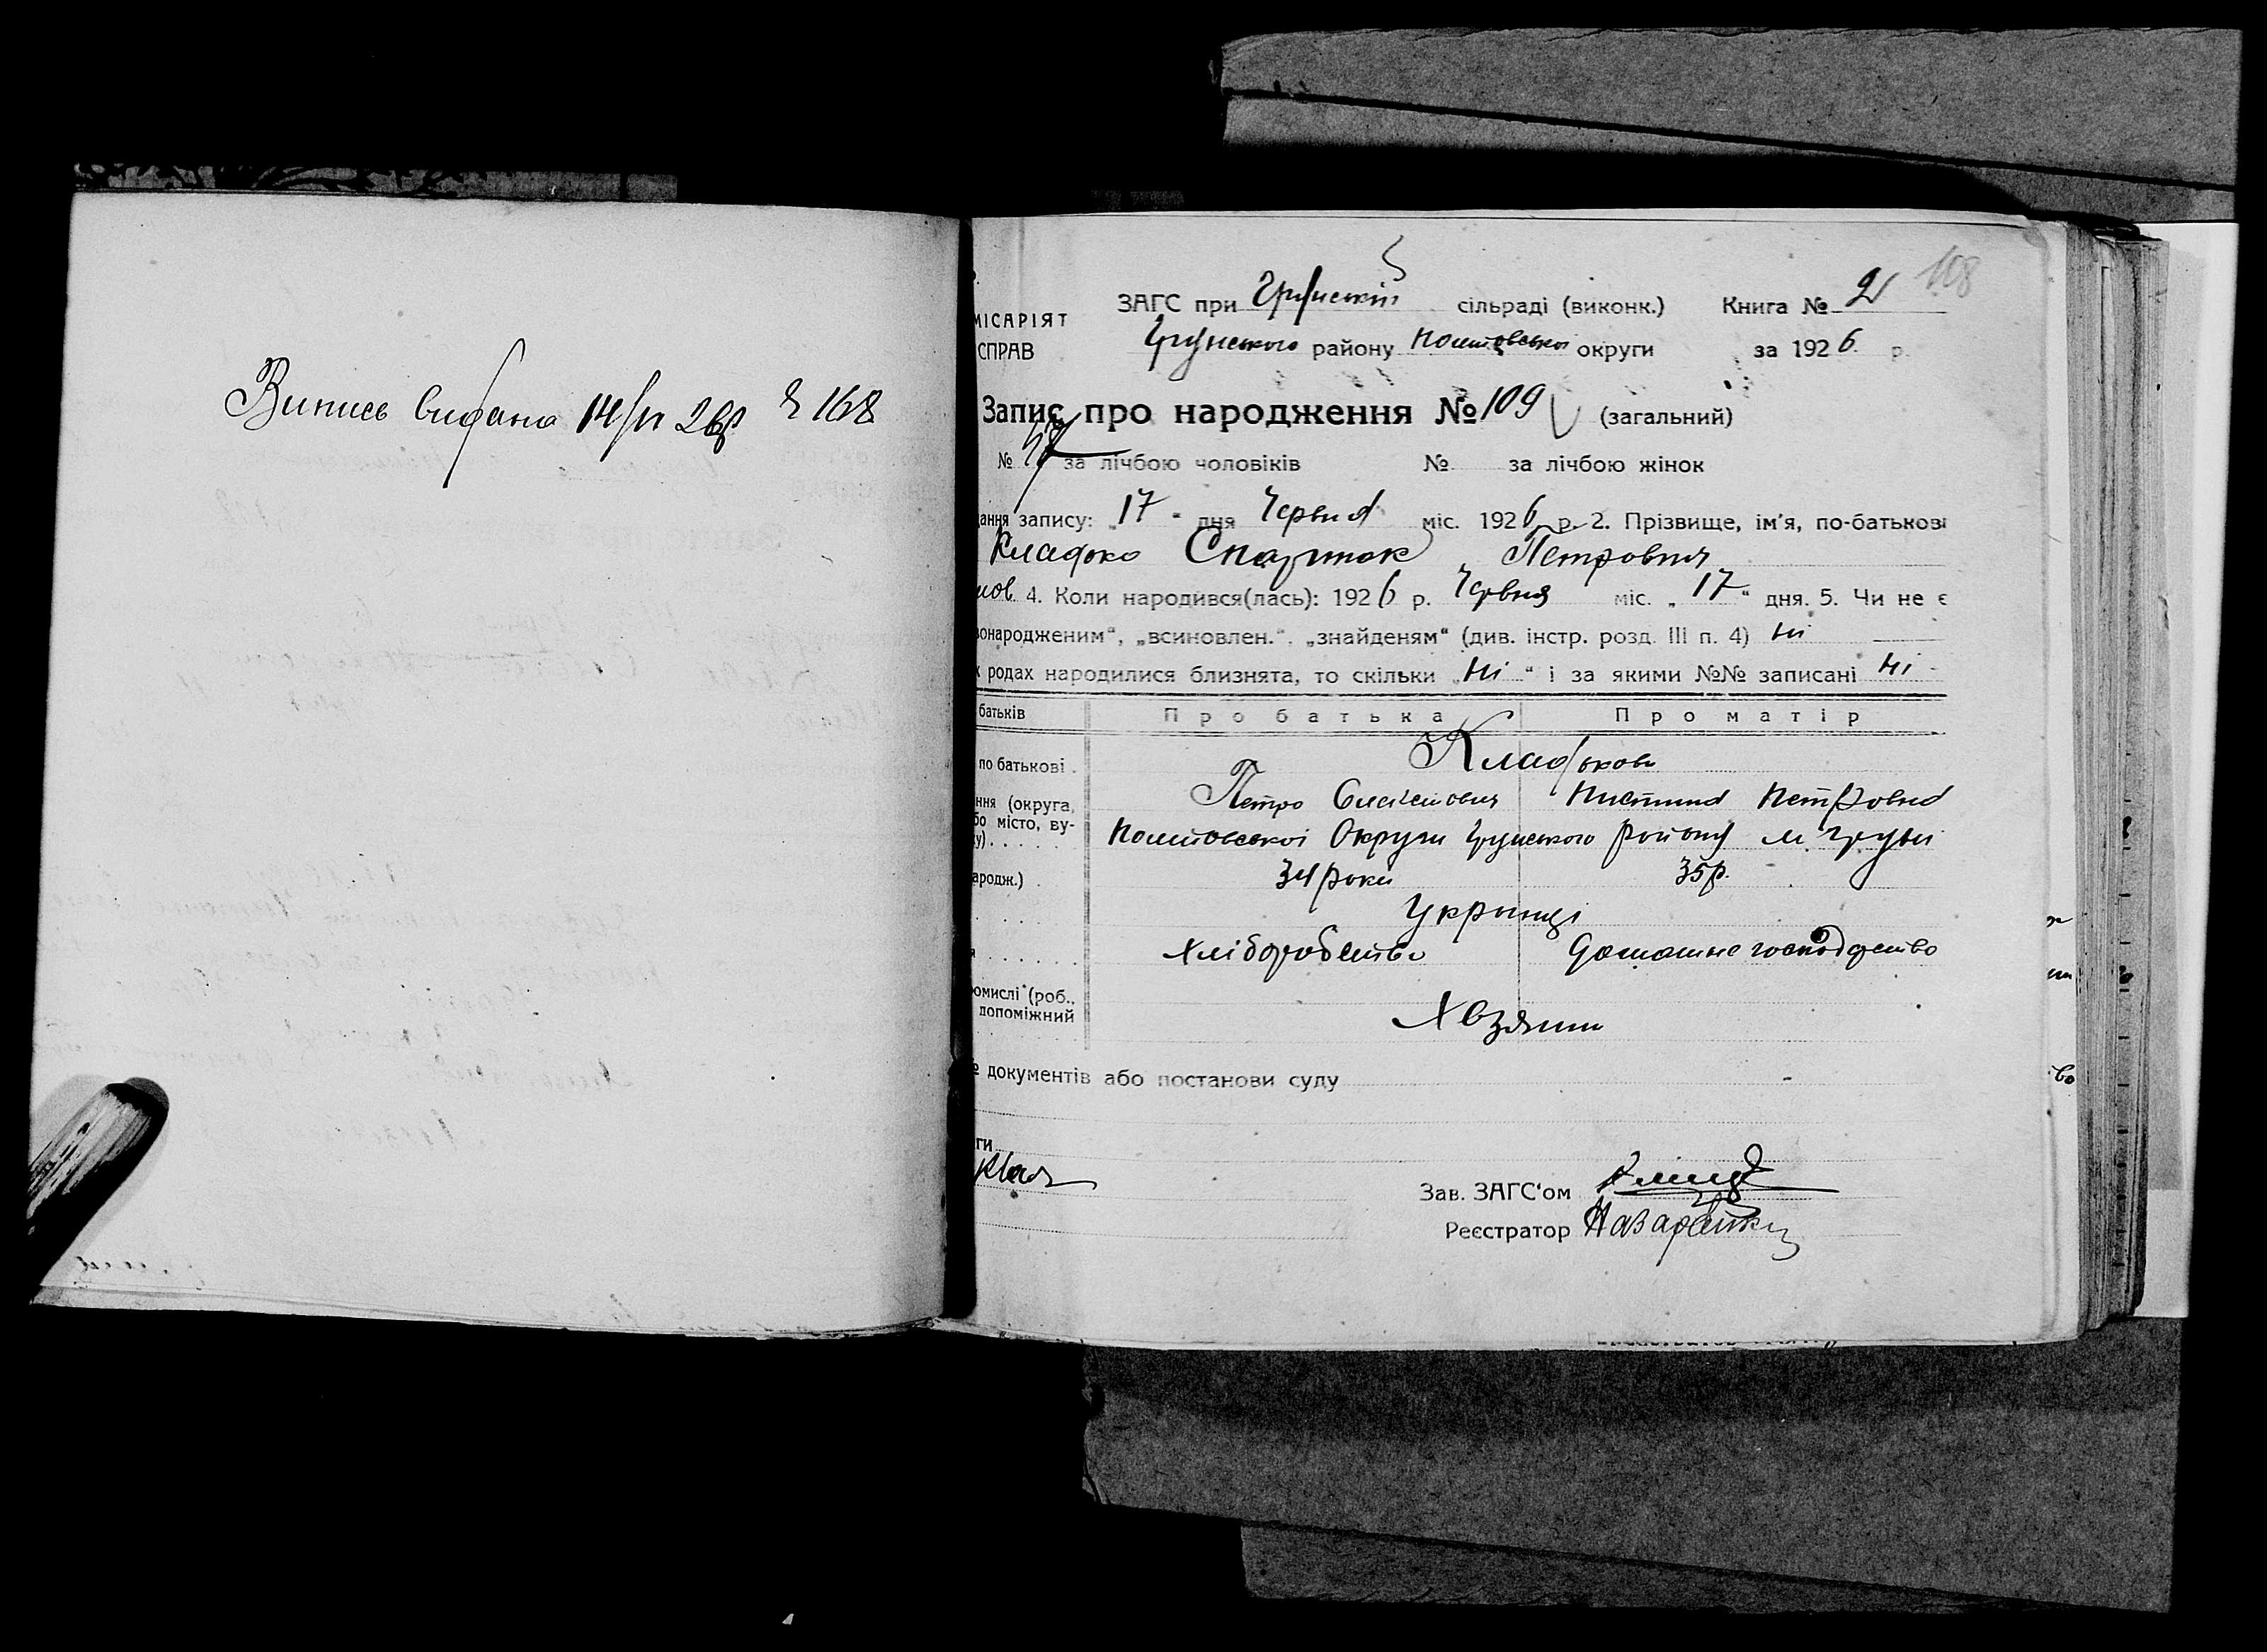 Випись видана 14/VI 26р № 168
108
ЗАГС при Грунській сільраді (виконк.) Книга № 2
МІСАРІЯТ
Грунського району Полтавської округи за 1926 р.
СПРАВ
Запис про народження № 109 (загальний)
№ за лічбою чоловіків № за лічбою жінок
дання запису: „17“ дня Червня міс. 1926 р. 2. Прізвище, ім'я, по-батькові
Кладько Спартак Петрович
4. Коли народився(лась): 1926 р. Червня міс. „17“ дня. 5. Чи не є
вонародженим“, „всиновлен.“, „знайденям“ (див. інстр. розд. III п. 4) Ні
х родах народилися близнята, то скільки „Ні“ і за якими №№ записані Ні
батьків Про батька Про матір
по батькові Кладькови
Петро Петровна
ння (округа,
бо місто, ву-
у) Округи Грунського району м Грунь
ародж.) 34 роки 35 р.
Українці
Хліборобство Домашнє господарство
ромислі (роб.,
допоміжний
Хазяїни
№ документів або постанови суду
ги
Зав. ЗАГС'ом
Реєстратор